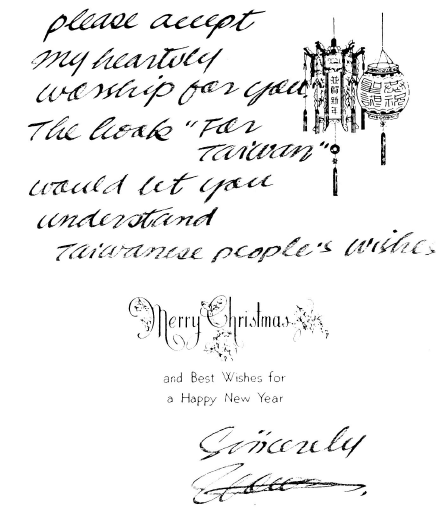 please accept
my heartoly
worship for you
The book "For
Taiwan"
would let you
understand
Taiwanese people's wishes
Merry Christmas
and Best Wishes for
a Happy New Year
Sincerely